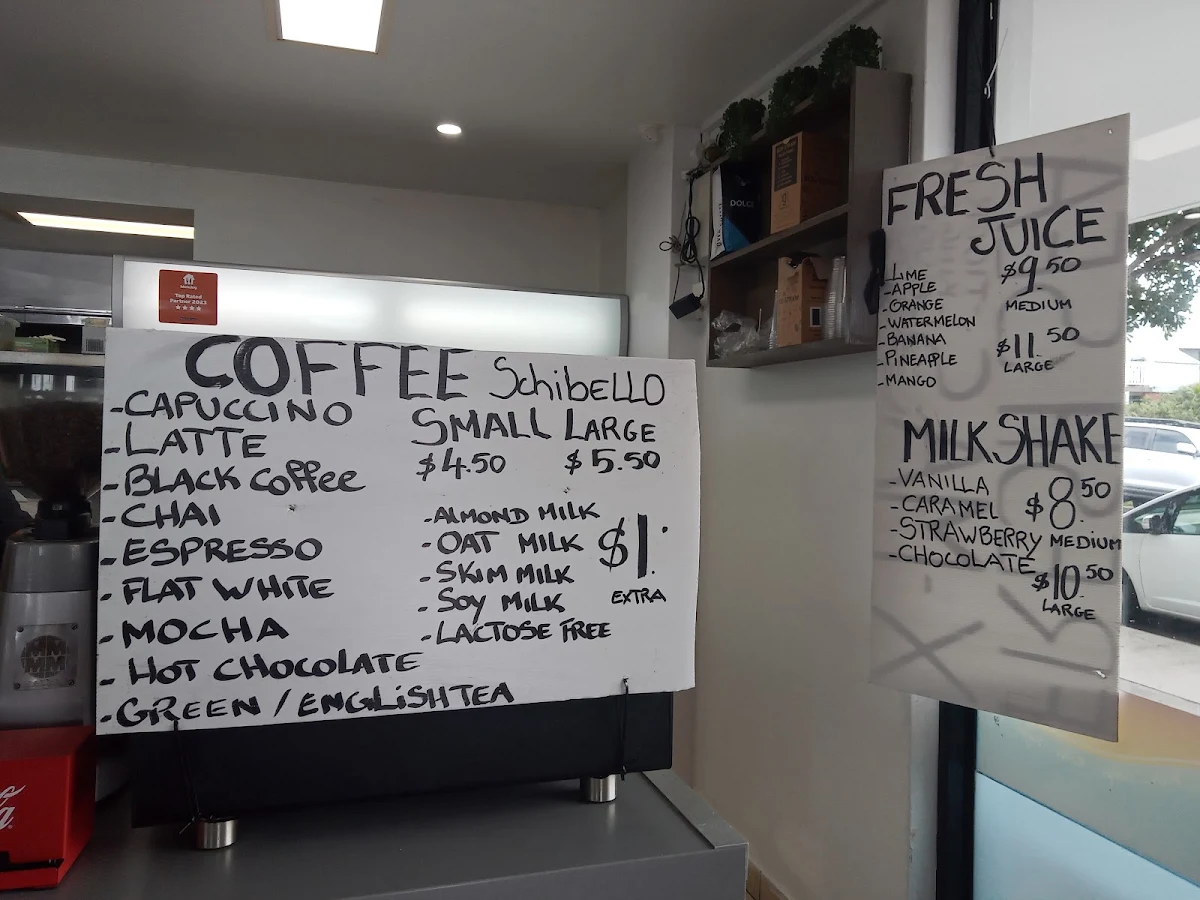 Top Rated
Partner 2023
COFFEE Schibello
-CAPUCCINO
-LATTE
-BLACK coffee
-CHAI
-ESPRESSO
-FLAT WHITE
-MOCHA
-HOT CHOCOLATE
-GREEN / ENGLISH TEA
SMALL LARGE
$4.50 $5.50
-ALMOND MILK
-OAT MILK
-SKIM MILK
-SOY MILK
-LACTOSE FREE
$1.
EXTRA
DOLCE
FRESH
JUICE
-LIME
-APPLE
-ORANGE
-WATERMELON
-BANANA
-PINEAPPLE
-MANGO
$9.50
MEDIUM
$11.50
LARGE
MILKSHAKE
-VANILLA
-CARAMEL
-STRAWBERRY
-CHOCOLATE
$8.50
MEDIUM
$10.50
LARGE